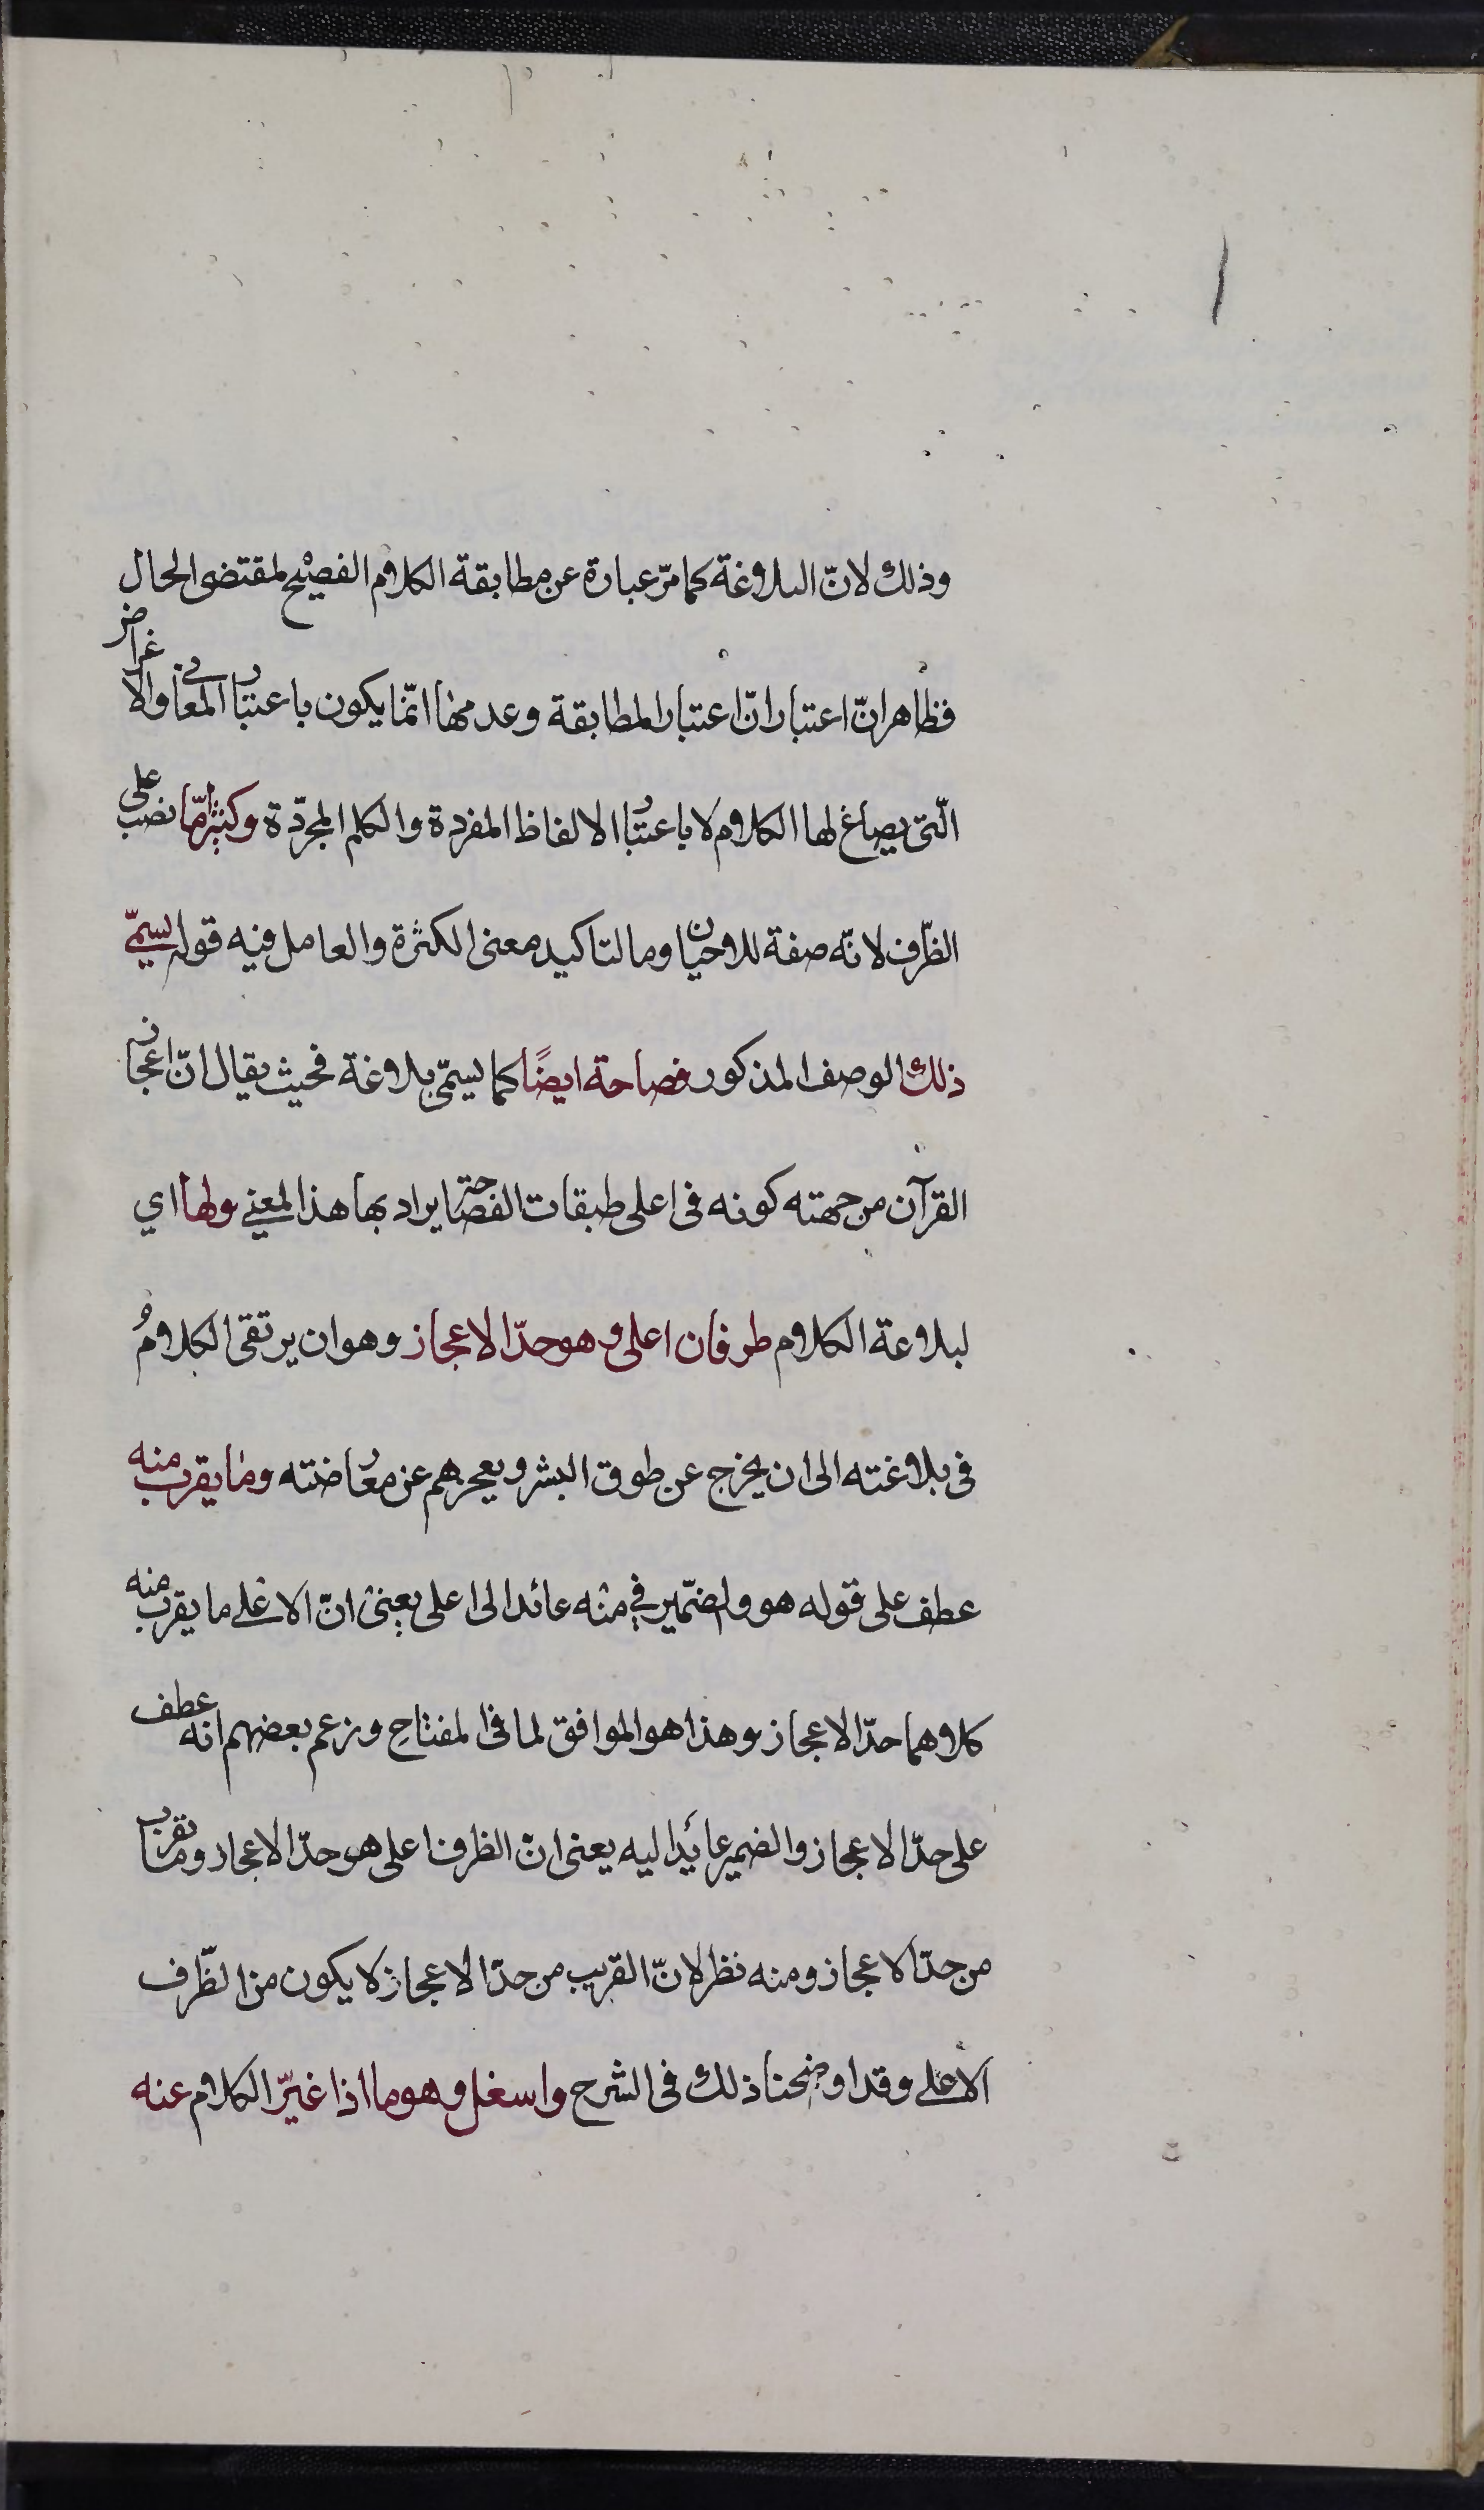 وذلك لانّ البلاغة كما مرّ عبارة عن مطابقة الكلام الفصيح لمقتضى الحال
فظاهر انّ اعتبار انّ اعتبار المطابقة وعدمها انّما يكون باعتبار المعانى والاغراض
الّتى يصاغ لها الكلام لا باعتبار الالفاظ المفردة والكلم المجرّدة وكثيرامّا نصب على
الظّرف لانّه صفة للاحيان وما لتاكيد معنى الكثرة والعامل فيه قوله يسمّى
ذلك الوصف المذكور فصاحة ايضًا كما يسمّى بلاغة فحيث يقال انّ اعجاز
القرآن من جهته كونه فى اعلى طبقات الفصاحة يراد بها هذا المعنى ولها اي
لبلاغة الكلام طرفان اعلى وهو حدّ الاعجاز وهو ان يرتقى الكلامُ
فى بلاغته الى ان يخرج عن طوق البشر ويعجزهم عن معارضته وما يقرب منه
عطف على قوله هو والضّمير في منه عائد الى اعلى يعنى انّ الاعلى ما يقرب منه
كلاهما حدّ الاعجاز وهذا هو الموافق لما فى المفتاح وزعم بعضهم انه عطف
على حدّ الاعجاز والضمير عائدا ليه يعنى انّ الظرفا على هو حدّ الاعجاز وما يقرب
من حدّ الاعجاز ومنه نظر لانّ القريب من حدّ الاعجاز لا يكون من الظّرف
الاعلى وقد اوضحنا ذلك فى الشرح واسغل وهو ما اذا غيّر الكلام عنه